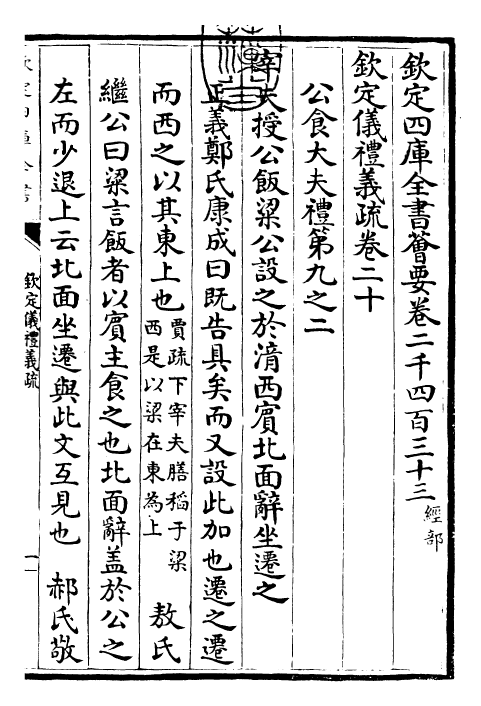 欽定四庫全書薈要卷二千四百三十三 經部
欽定儀禮義疏卷二十
公食大夫禮第九之二
宰夫授公飯粱公設之於湇西賓北面辭坐遷之
正義鄭氏康成曰既告具矣而又設此加也遷之遷
而西之以其東上也 賈疏下宰夫膳稻于粱
西是以粱在東為上 敖氏
繼公曰粱言飯者以賓主食之也北面辭盖於公之
左而少退上云北面坐遷與此文互見也 郝氏敬
欽定儀禮義疏
一